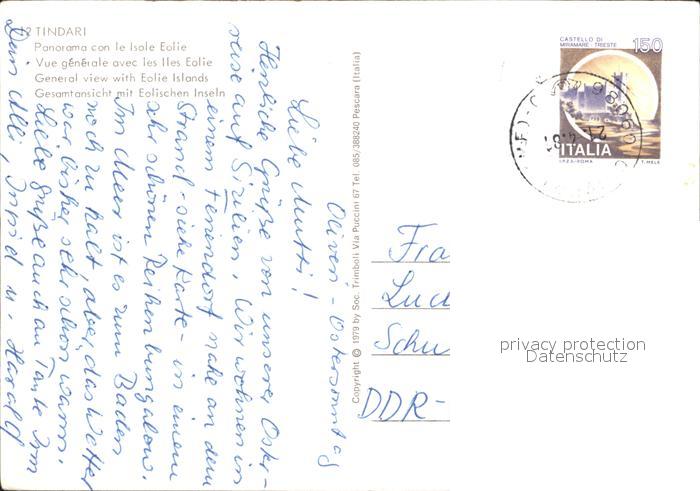 TINDARI
Panorama con le Isole Eolie
Vue générale avec les Iles Eolie
General view with Eolie Islands
Gesamtansicht mit Eolischen Inseln
Oliveri - Ostersonntag
Liebe Mutti!
Herzliche Grüße von unserer Oster-
reise auf Sizilien. Wir wohnen in
einem Feriendorf nahe an dem
Strand - siehe Karte - in einem
sehr schönen Reihenbungalow.
Im Meer ist es zum Baden
noch zu kalt, aber das Wetter
war bisher sehr schön warm.
Liebe Grüße auch an Tante Irm
Dein Ulli, Ingrid u. Harald
Copyright © 1979 by Soc. Trimboli Via Puccini 67 Tel. 085/388240 Pescara (Italia)
CASTELLO DI
MIRAMARE - TRIESTE
150
ITALIA
I.P.Z.S. - ROMA
T. MELE
21.4.81
Fra
Schu
DDR-
privacy protection
Datenschutz